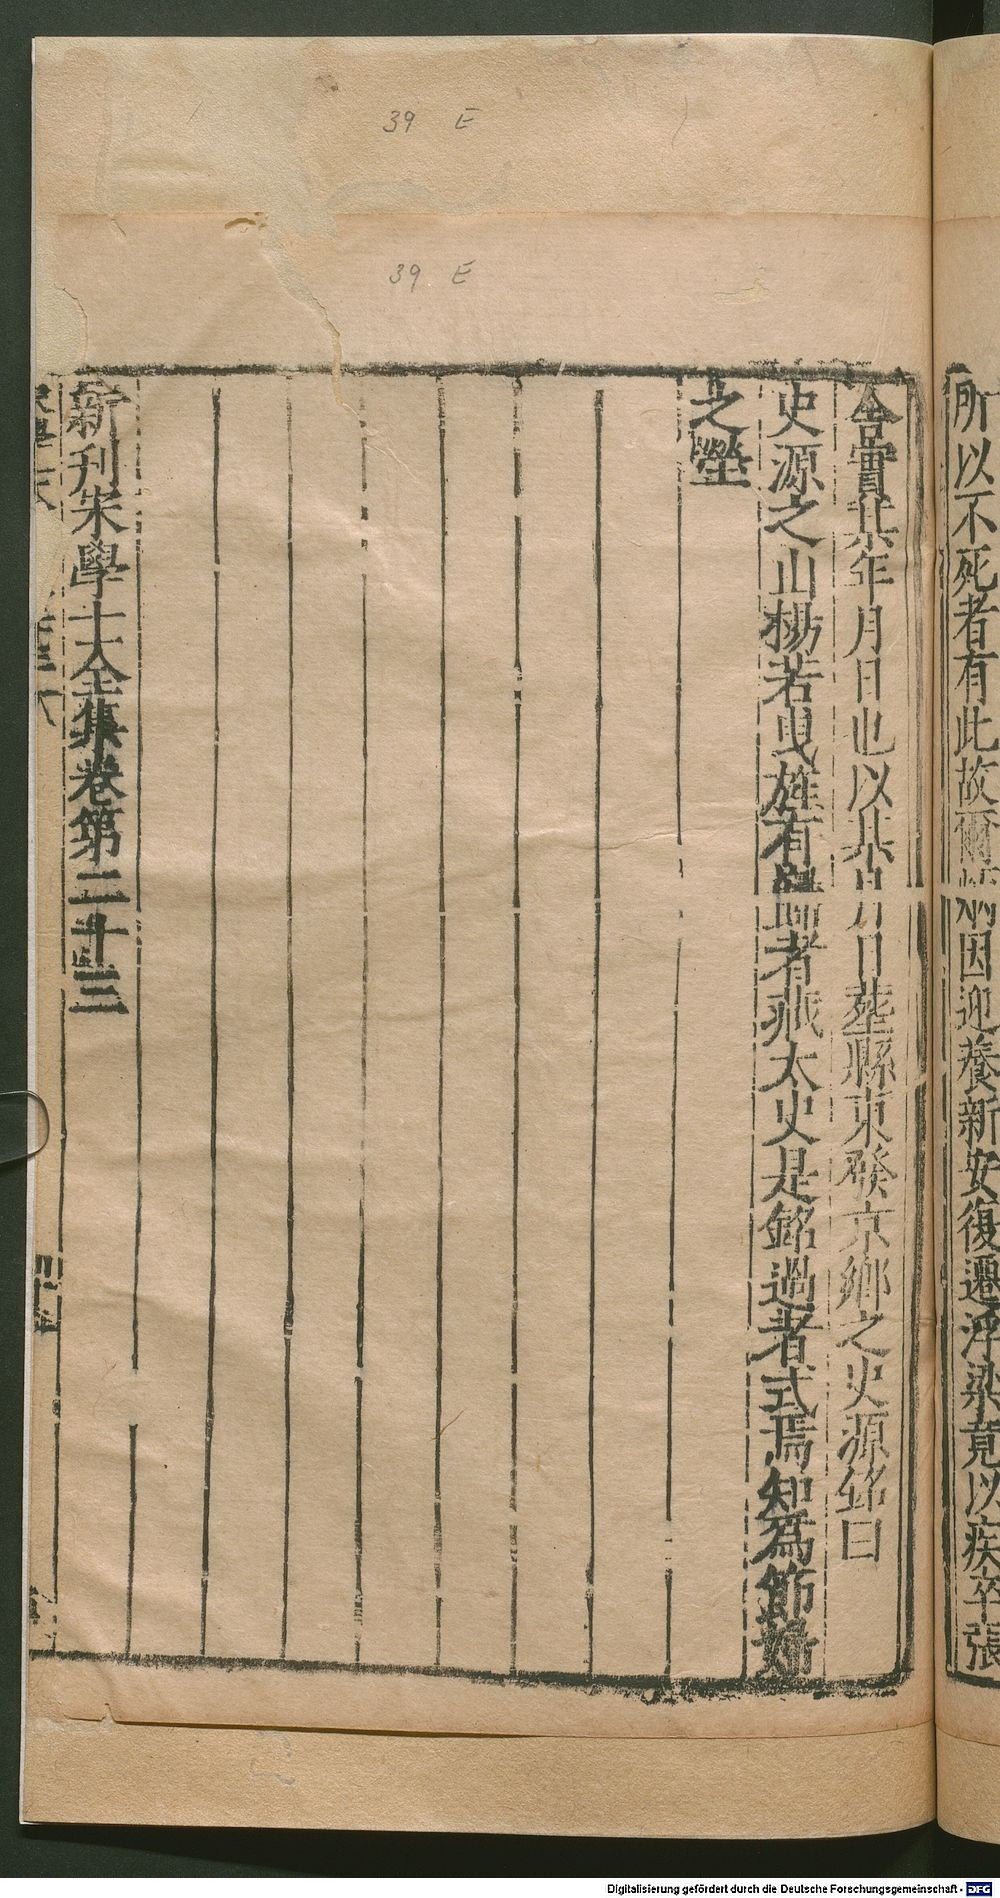 39 E
39 E
所以不死者有此故爾 因迎養新安復遷浮梁竟以疾卒張
含實某年月日也以某月日葬縣東癸亰鄉之史源銘曰
史源之山楊若曳旌有歸者藏太史是銘過者式焉知為節婦
之塋
新刋宋學士全集卷第二十三
Digitalisierung gefördert durch die Deutsche Forschungsgemeinschaft - DFG